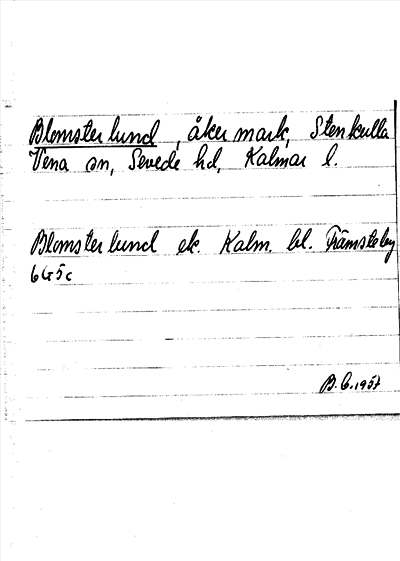 Blomsterlund, åkermark, Stenkulla
Vena sn, Sevede hd, Kalmar l.
Blomsterlund ek. Kalm. bl. Främsteby
6G5c
B.G.1957